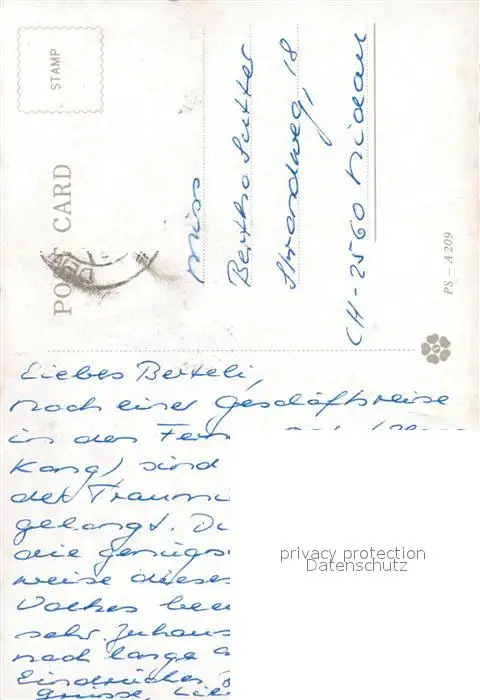 STAMP
POST CARD
Miss
Bertha Sutter
Strandweg, 18
CH-2560 Nidau
PS - A 209
Liebes Berteli,
nach einer Geschäftsreise
in den
Kong) sind
der
gelangt.
die
weise dieses
Volkes
sehr. Zuhaus
nach lange
Eindrücke
Grüsse,
privacy protection
Datenschutz